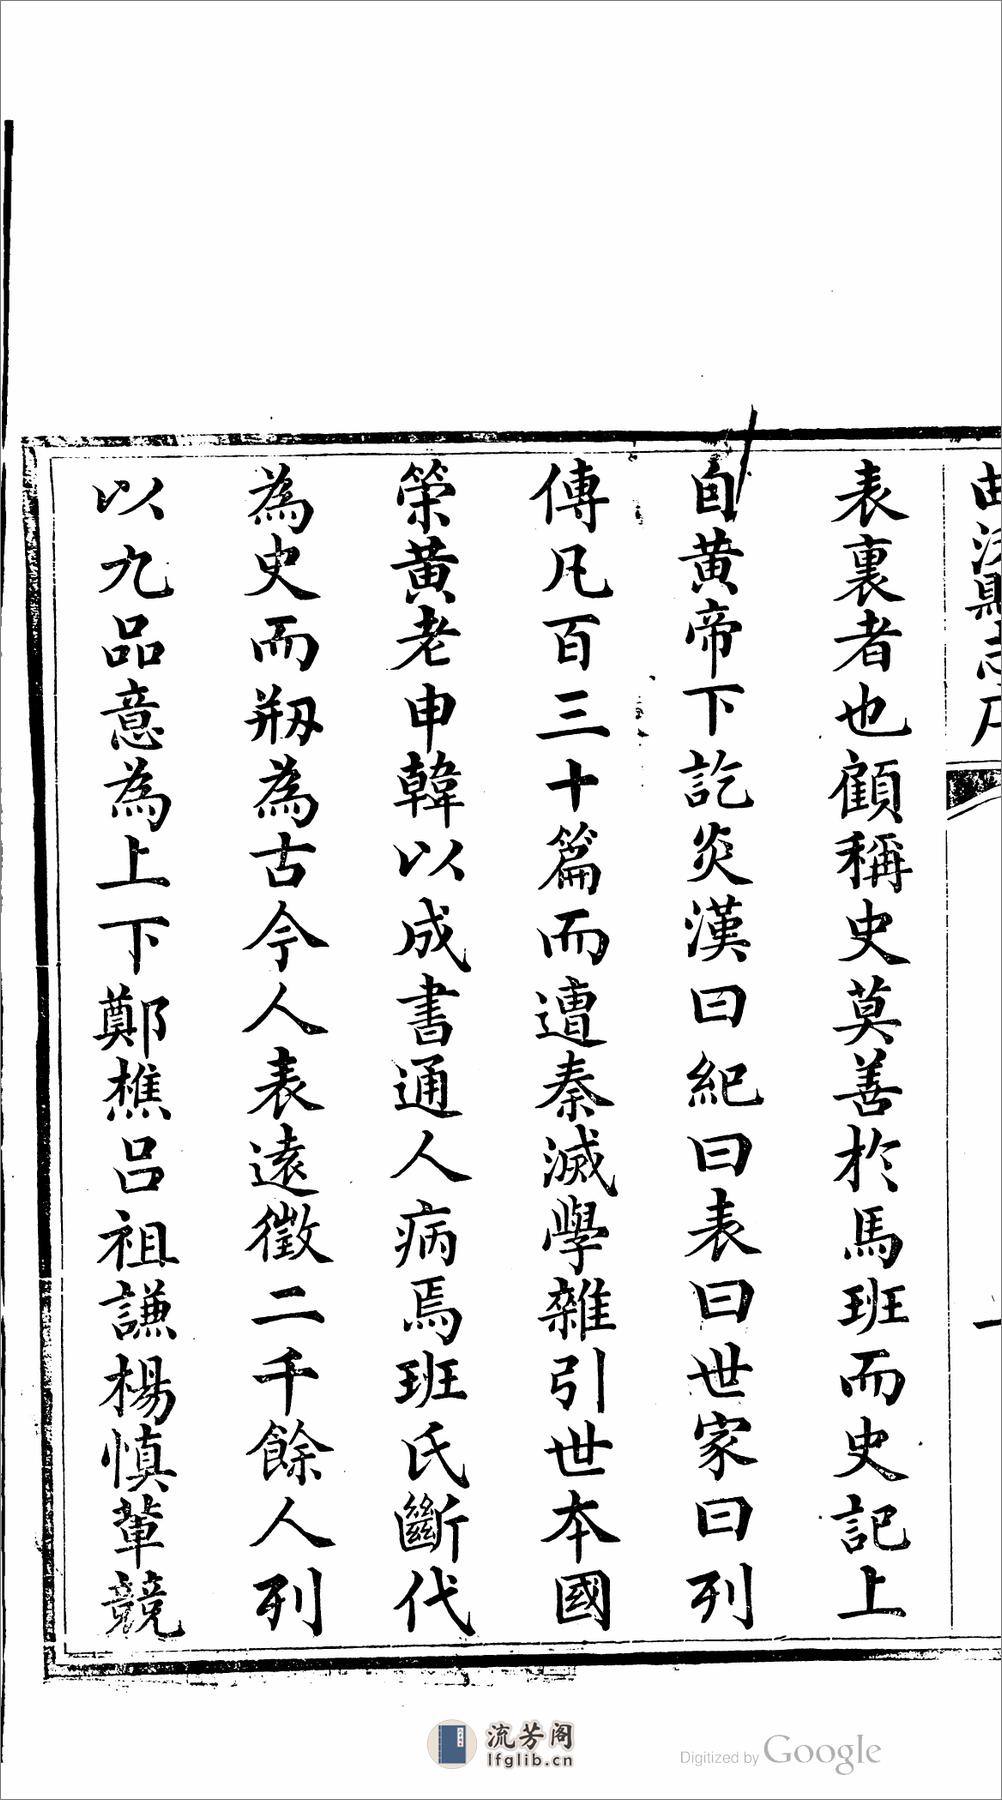 曲沃縣志序
一
表裏者也顧稱史莫善於馬班而史記上
自黃帝下訖炎漢曰紀曰表曰世家曰列
傳凡百三十篇而遭秦滅學雜引世本國
策黃老申韓以成書通人病焉班氏斷代
為史而剏為古今人表遠徵二千餘人列
以九品意為上下鄭樵呂祖謙楊慎輩競
流芳阁
lfglib.cn
Digitized by Google